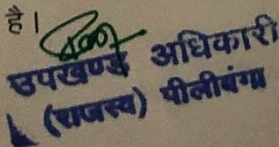 है।
उपखण्ड अधिकारी
(राजस्व) पीलीबंगा